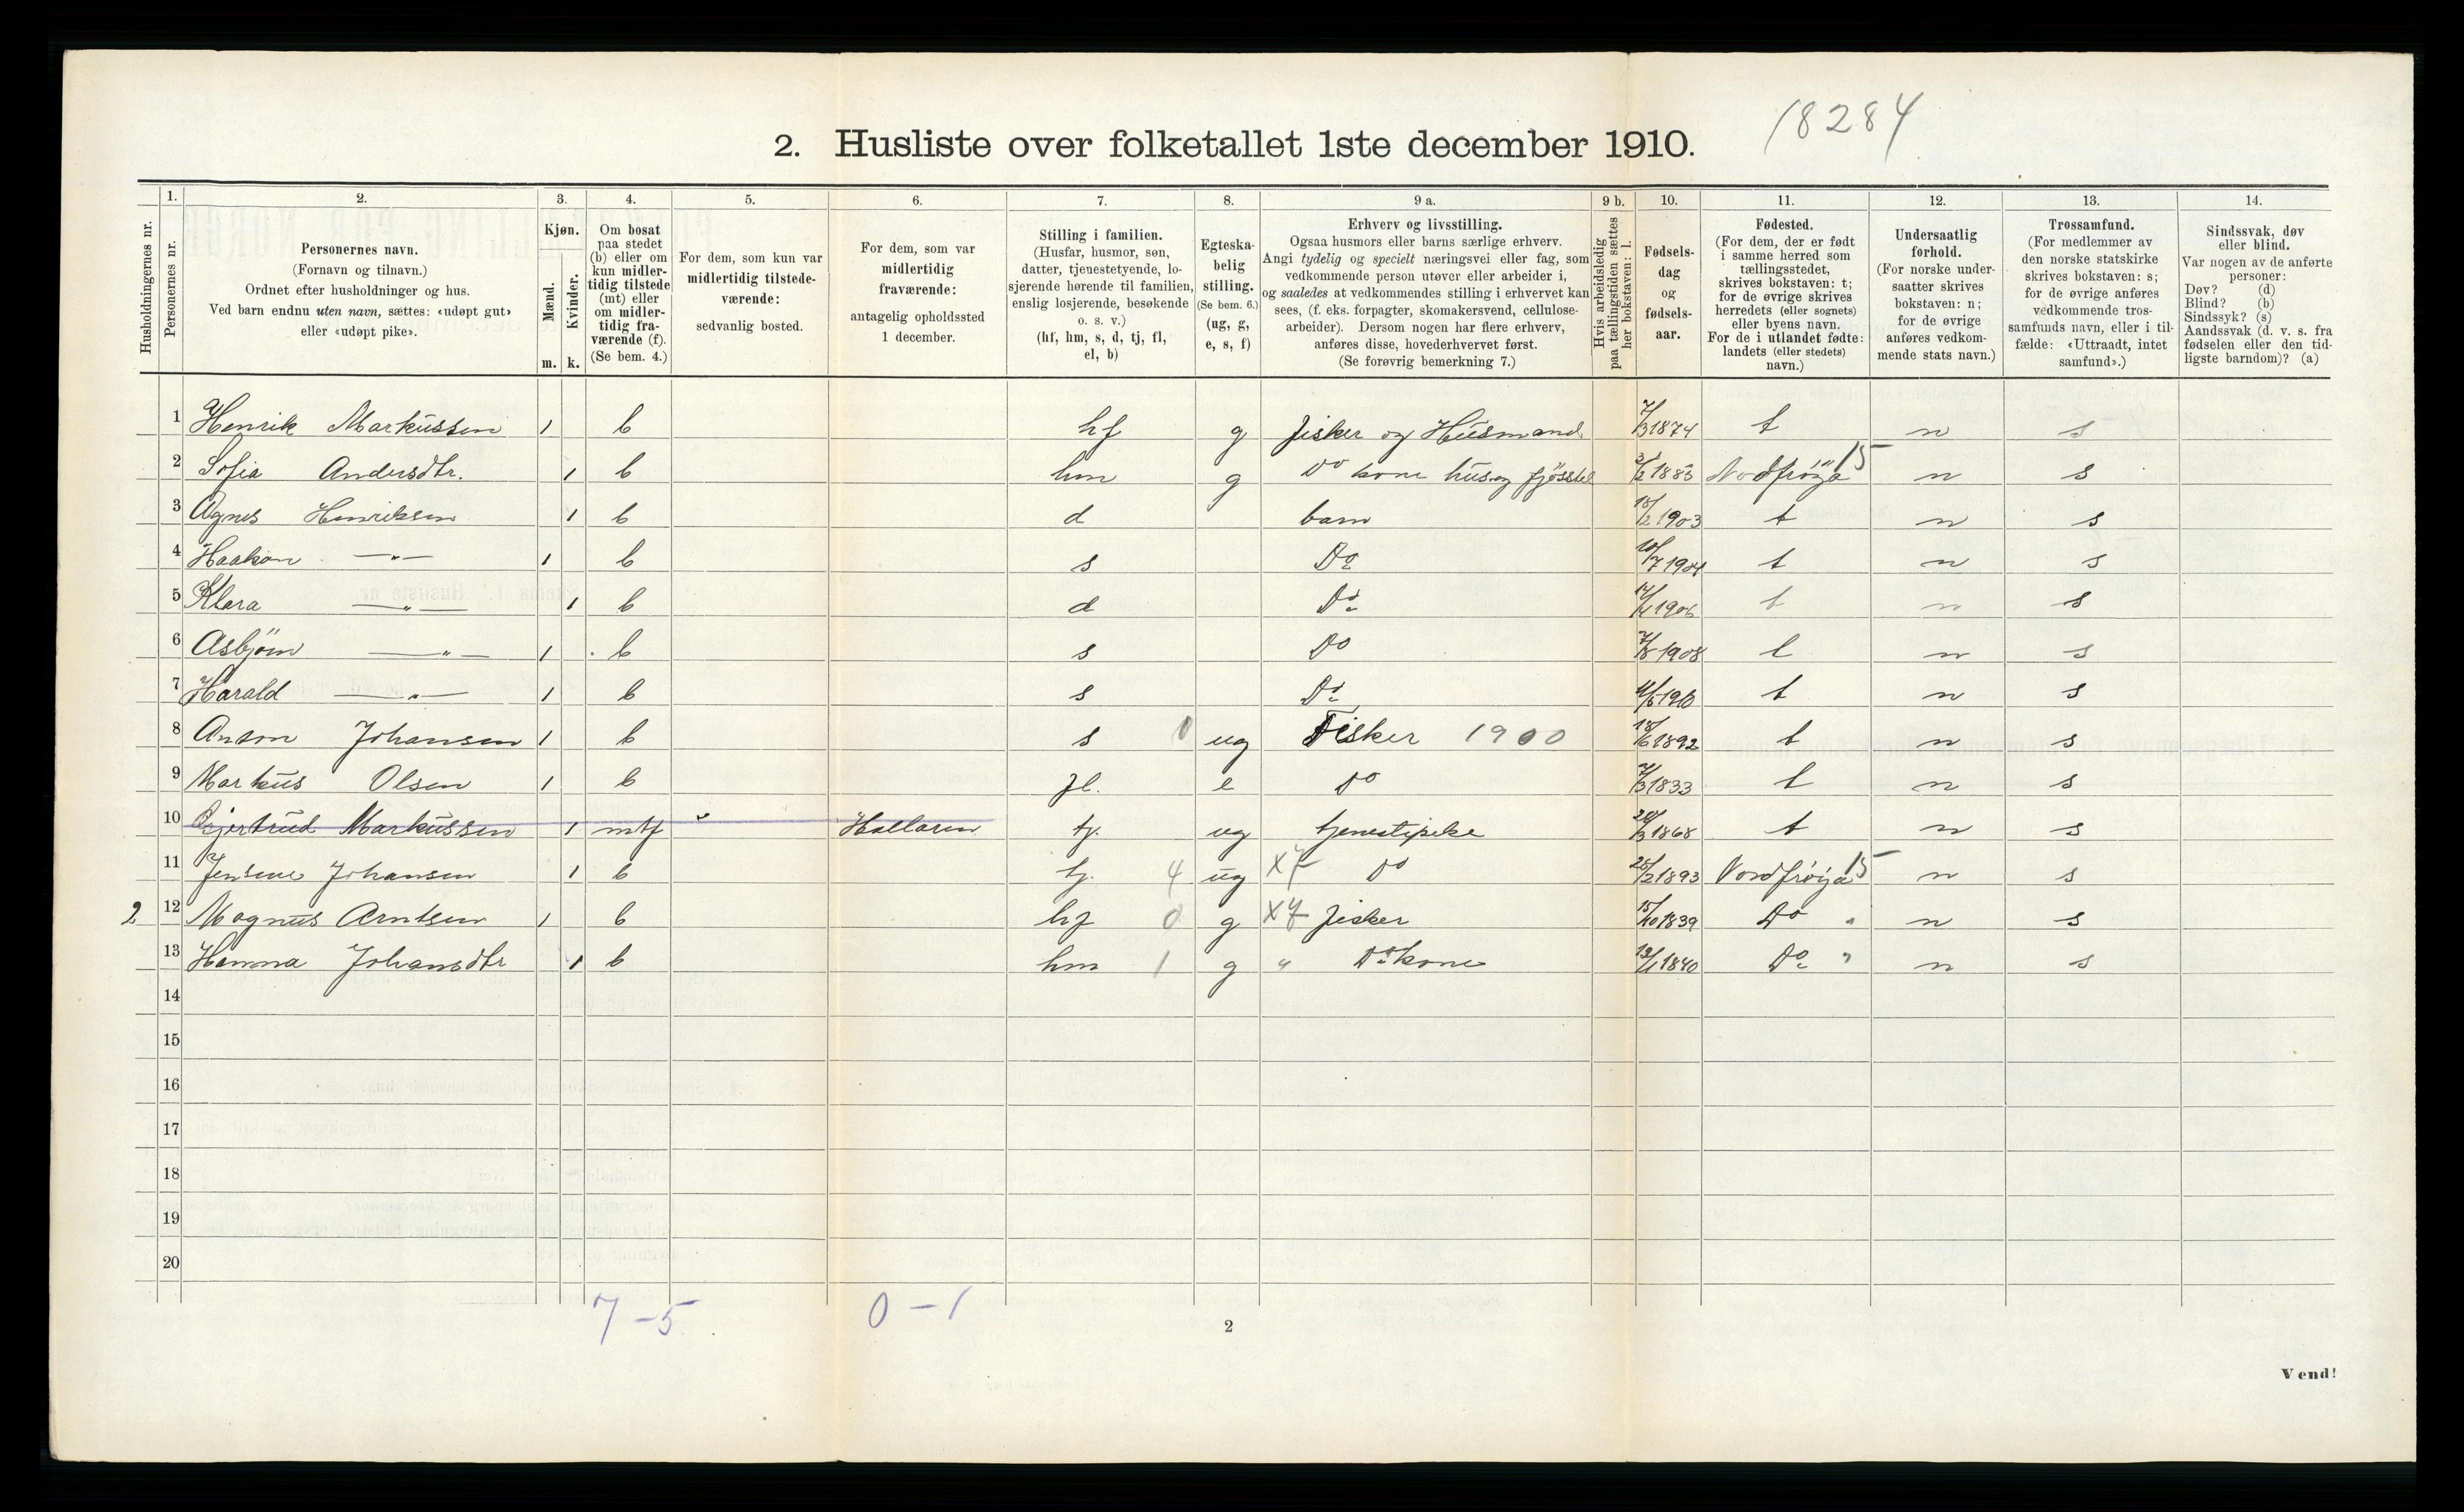 18284
2. Husliste over folketallet 1ste december 1910.
Husholdningernes nr.
1. Personernes nr.
2. Personernes navn.
(Fornavn og tilnavn.)
Ordnet efter husholdninger og hus.
Ved barn endnu uten navn, sættes: «udøpt gut»
eller «udøpt pike».
3. Kjøn.
Mænd. m.
Kvinder. k.
4. Om bosat
paa stedet
(b) eller om
kun midler-
tidig tilstede
(mt) eller
om midler-
tidig fra-
værende (f).
(Se bem. 4.)
5. For dem, som kun var
midlertidig tilstede-
værende:
sedvanlig bosted.
6. For dem, som var
midlertidig
fraværende:
antagelig opholdssted
1 december.
7. Stilling i familien.
(Husfar, husmor, søn,
datter, tjenestetyende, lo-
sjerende hørende til familien,
enslig losjerende, besøkende
o. s. v.)
(hf, hm, s, d, tj, fl,
el, b)
8. Egteska-
belig
stilling.
(Se bem. 6.)
(ug, g,
e, s, f)
9 a. Erhverv og livsstilling.
Ogsaa husmors eller barns særlige erhverv.
Angi tydelig og specielt næringsvei eller fag, som
vedkommende person utøver eller arbeider i,
og saaledes at vedkommendes stilling i erhvervet kan
sees, (f. eks. forpagter, skomakersvend, cellulose-
arbeider). Dersom nogen har flere erhverv,
anføres disse, hovederhvervet først.
(Se forøvrig bemerkning 7.)
9 b. Hvis arbeidsledig
paa tællingstiden sættes
her bokstaven: l.
10. Fødsels-
dag
og
fødsels-
aar.
11. Fødested.
(For dem, der er født
i samme herred som
tællingsstedet,
skrives bokstaven: t;
for de øvrige skrives
herredets (eller sognets)
eller byens navn.
For de i utlandet fødte:
landets (eller stedets)
navn.)
12. Undersaatlig
forhold.
(For norske under-
saatter skrives
bokstaven: n;
for de øvrige
anføres vedkom-
mende stats navn.)
13. Trossamfund.
(For medlemmer av
den norske statskirke
skrives bokstaven: s;
for de øvrige anføres
vedkommende tros-
samfunds navn, eller i til-
fælde: «Uttraadt, intet
samfund».)
14. Sindssvak, døv
eller blind.
Var nogen av de anførte
personer:
Døv? (d)
Blind? (b)
Sindssyk? (s)
Aandssvak (d. v. s. fra
fødselen eller den tid-
ligste barndom)? (a)
1 Henrik Markussen 1 b hf g fisker og Husmand 7/3 1874 t n s
2 Sofia Andersdtr. 1 b hm g Do kone hus og fjøsstel 1883 Nodfrøya 15 n s
3 Agnes Henriksen 1 b d barn 18/2 1903 t n s
4 Haakon —"— 1 b s Do 10/7 1904 t n s
5 Klara —"— 1 b d Do 14/4 1906 t n s
6 Asbjörn —"— 1 b s Do 7/8 1908 t n s
7 Harald —"— 1 b s Do 1910 t n s
8 Anton Johansen 1 b s 0 ug Fisker 1900 18/6 1892 t n s
9 Markus Olsen 1 b fl. e Do 7/3 1833 t n s
10 Gjertrud Markussen 1 mtf Hallaren tj. ug tjenestepike 24/3 1868 t n s
11 Jensine Johansen 1 b tj. 4 ug X7 Do 25/2 1893 Nordfrøya 15 n s
2 12 Magnus Arntsen 1 b hf 0 g X7 fisker 15/10 1839 Do " n s
13 Hanna Johansdtr 1 b hm 1 g " Do kone 13/1 1840 Do " n s
14
15
16
17
18
19
20
7 – 5 0 – 1
2
Vend!